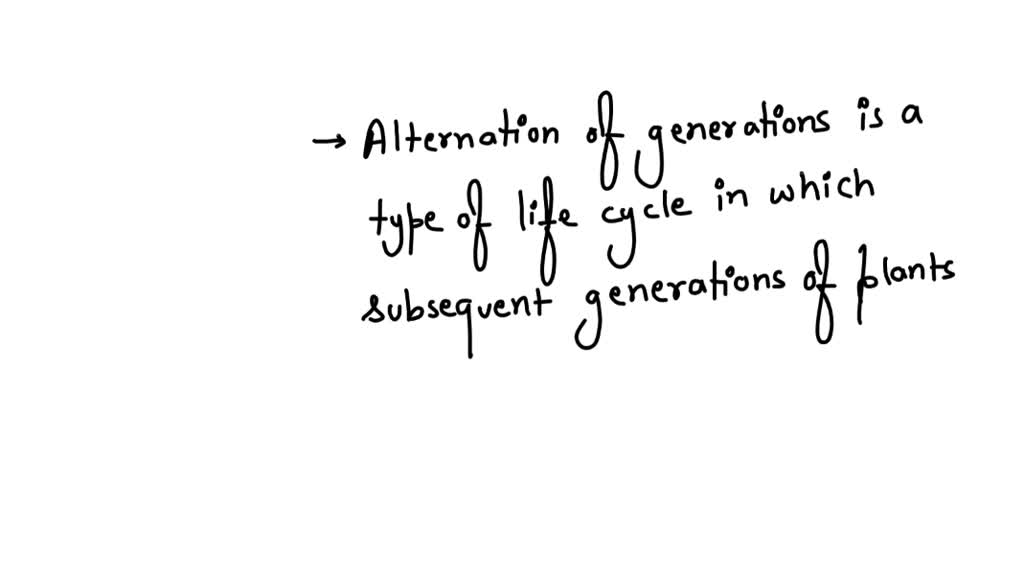 → Alternation of generations is a
type of life cycle in which
subsequent generations of plants